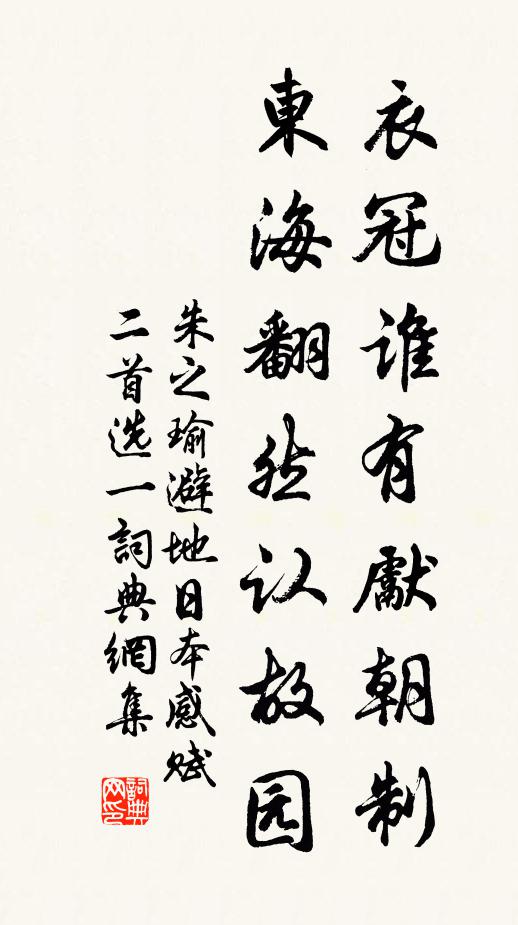 衣冠谁有獻朝制
東海翻然认故园
朱之瑜避地日本感赋
二首选一詞典網集
詞典
网印